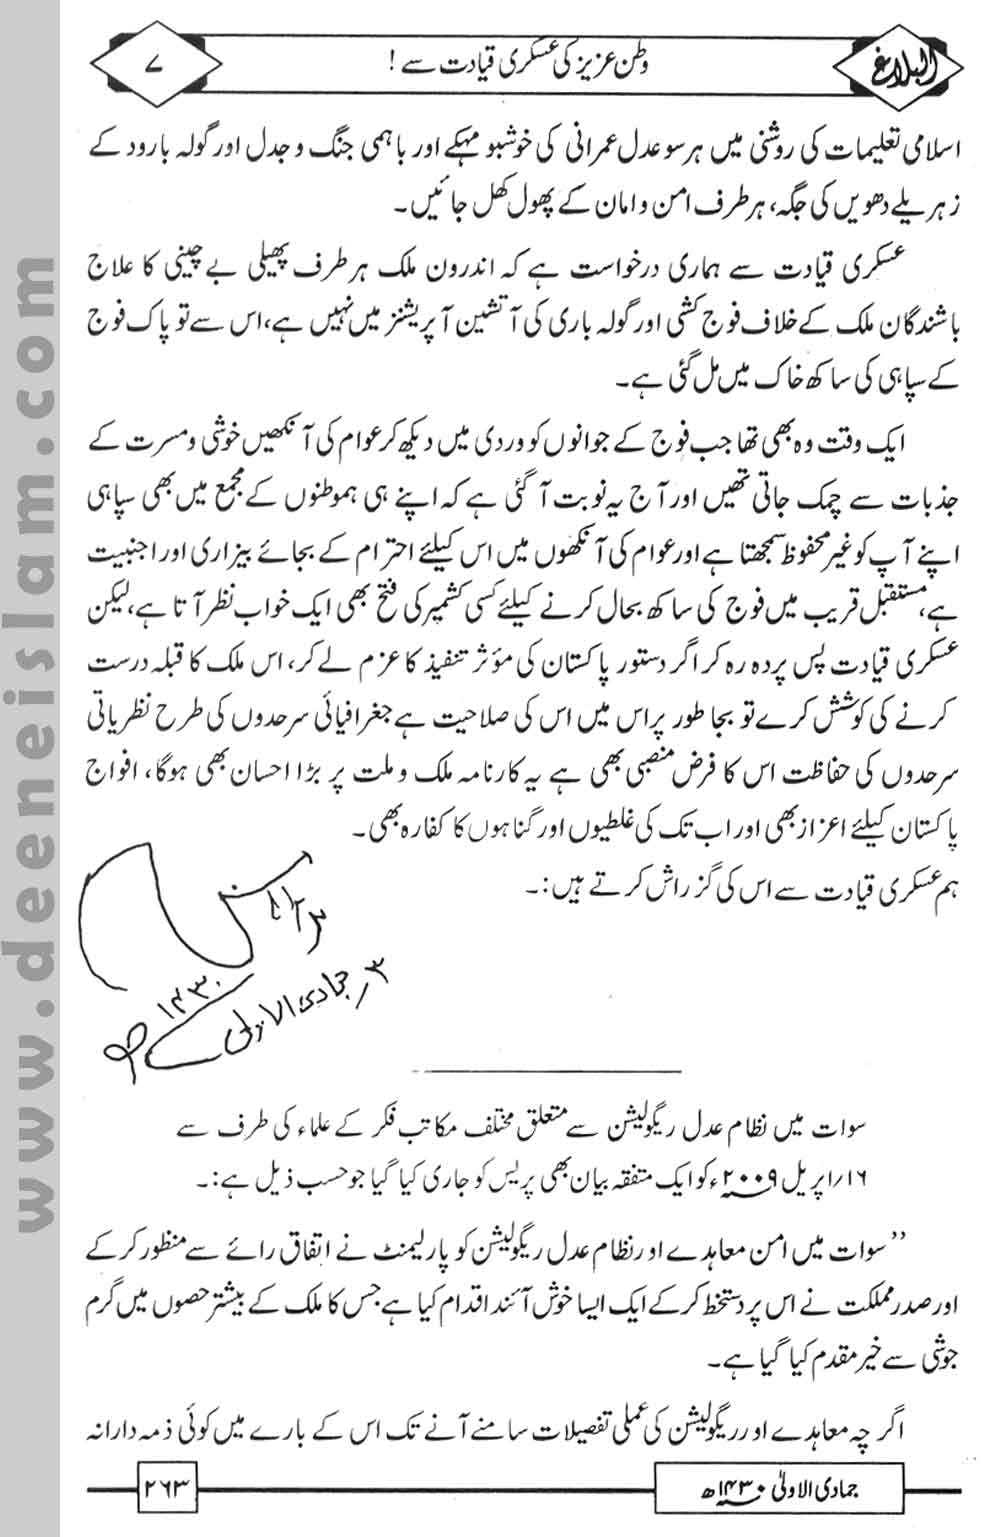 البلاغ
وطن عزیز کی عسکری قیادت سے !
۷
اسلامی تعلیمات کی روشنی میں ہر سو عدل عمرانی کی خوشبو مہکے اور باہمی جنگ و جدل اور گولہ بارود کے
زہریلے دھویں کی جگہ، ہر طرف امن و امان کے پھول کھل جائیں۔
عسکری قیادت سے ہماری درخواست ہے کہ اندرون ملک ہر طرف پھیلی بے چینی کا علاج
باشندگان ملک کے خلاف فوج کشی اور گولہ باری کی آتشین آپریشنز میں نہیں ہے، اس سے تو پاک فوج
کے سپاہی کی ساکھ خاک میں مل گئی ہے۔
ایک وقت وہ بھی تھا جب فوج کے جوانوں کو وردی میں دیکھ کر عوام کی آنکھیں خوشی و مسرت کے
جذبات سے چمک جاتی تھیں اور آج یہ نوبت آ گئی ہے کہ اپنے ہی ہموطنوں کے مجمع میں بھی سپاہی
اپنے آپ کو غیر محفوظ سمجھتا ہے اور عوام کی آنکھوں میں اس کیلئے احترام کے بجائے بیزاری اور اجنبیت
ہے، مستقبل قریب میں فوج کی ساکھ بحال کرنے کیلئے کسی کشمیر کی فتح بھی ایک خواب نظر آتا ہے، لیکن
عسکری قیادت پس پردہ رہ کر اگر دستور پاکستان کی مؤثر تنفیذ کا عزم لے کر، اس ملک کا قبلہ درست
کرنے کی کوشش کرے تو بجا طور پر اس میں اس کی صلاحیت ہے جغرافیائی سرحدوں کی طرح نظریاتی
سرحدوں کی حفاظت اس کا فرض منصبی بھی ہے یہ کارنامہ ملک و ملت پر بڑا احسان بھی ہوگا، افواج
پاکستان کیلئے اعزاز بھی اور اب تک کی غلطیوں اور گناہوں کا کفارہ بھی۔
ہم عسکری قیادت سے اس کی گزراش کرتے ہیں:۔
۳؍ جمادی الاولی
۱۴۳۰
سوات میں نظام عدل ریگولیشن سے متعلق مختلف مکاتب فکر کے علماء کی طرف سے
۱۶؍اپریل ۲۰۰۹ء کو ایک متفقہ بیان بھی پریس کو جاری کیا گیا جو حسب ذیل ہے:۔
’’سوات میں امن معاہدے اور نظام عدل ریگولیشن کو پارلیمنٹ نے اتفاق رائے سے منظور کر کے
اور صدر مملکت نے اس پر دستخط کر کے ایک ایسا خوش آئند اقدام کیا ہے جس کا ملک کے بیشتر حصوں میں گرم
جوشی سے خیر مقدم کیا گیا ہے۔
اگر چہ معاہدے اور ریگولیشن کی عملی تفصیلات سامنے آنے تک اس کے بارے میں کوئی ذمہ دارانہ
جمادی الاولیٰ ۱۴۳۰ھ
۲۶۳
www.deeneislam.com